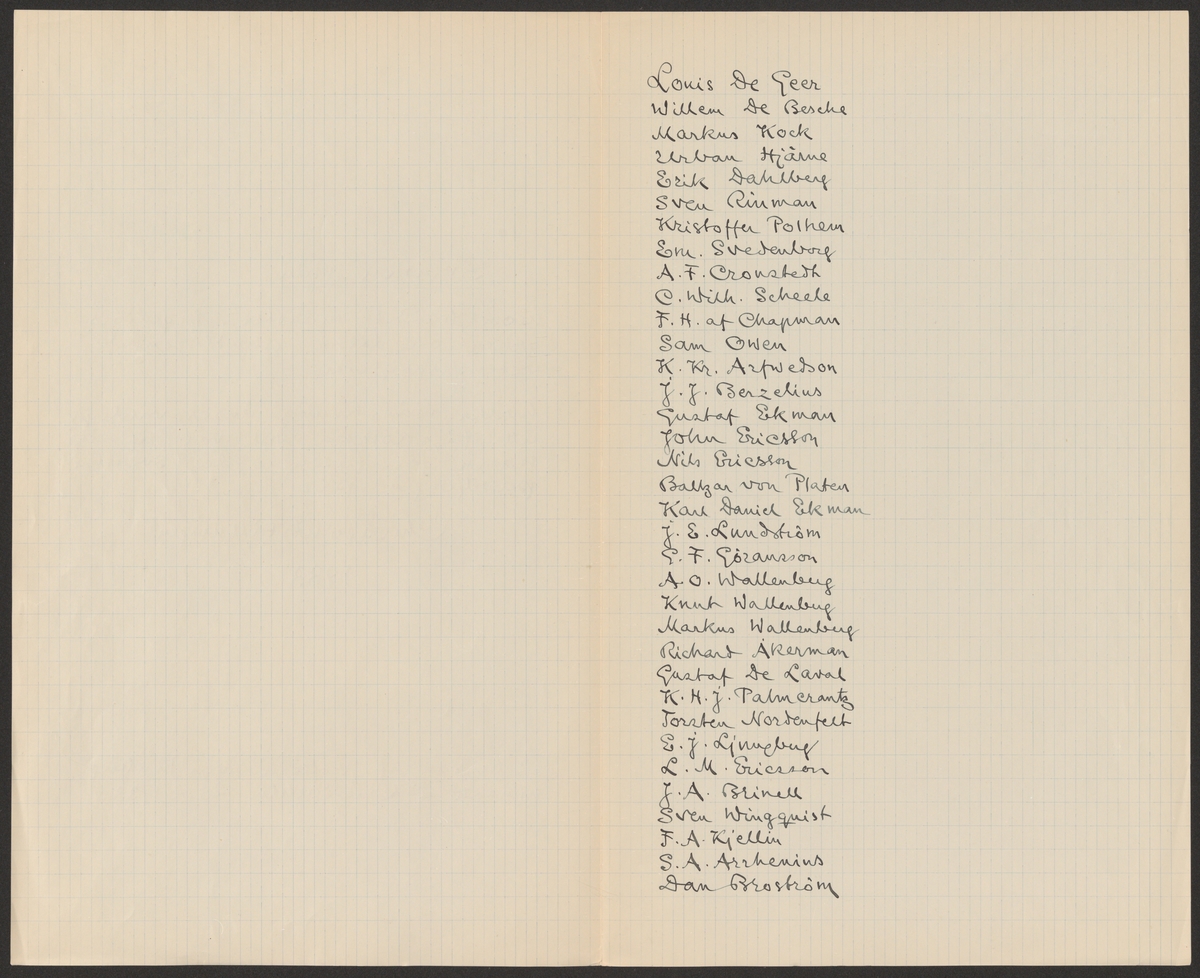 Louis De Geer
Willem De Besche
Markus Kock
Urban Hjärne
Erik Dahlberg
Sven Rinman
Kristoffer Polhem
Em. Svedenborg
A. F. Cronstedt
C. Wilh. Scheele
F. H. af Chapman
Sam Owen
K. Kr. Arfwedson
J. J. Berzelius
Gustaf Ekman
John Ericsson
Nils Ericsson
Baltzar von Platen
Karl Daniel Ekman
J. E. Lundström
G. F. Göransson
A. O. Wallenberg
Knut Wallenberg
Markus Wallenberg
Richard Åkerman
Gustaf De Laval
K. H. J. Palmcrantz
Torsten Nordenfelt
E. J. Ljungberg
L. M. Ericsson
J. A. Brinell
Sven Wingquist
F. A. Kjellin
S. A. Arrhenius
Dan Broström